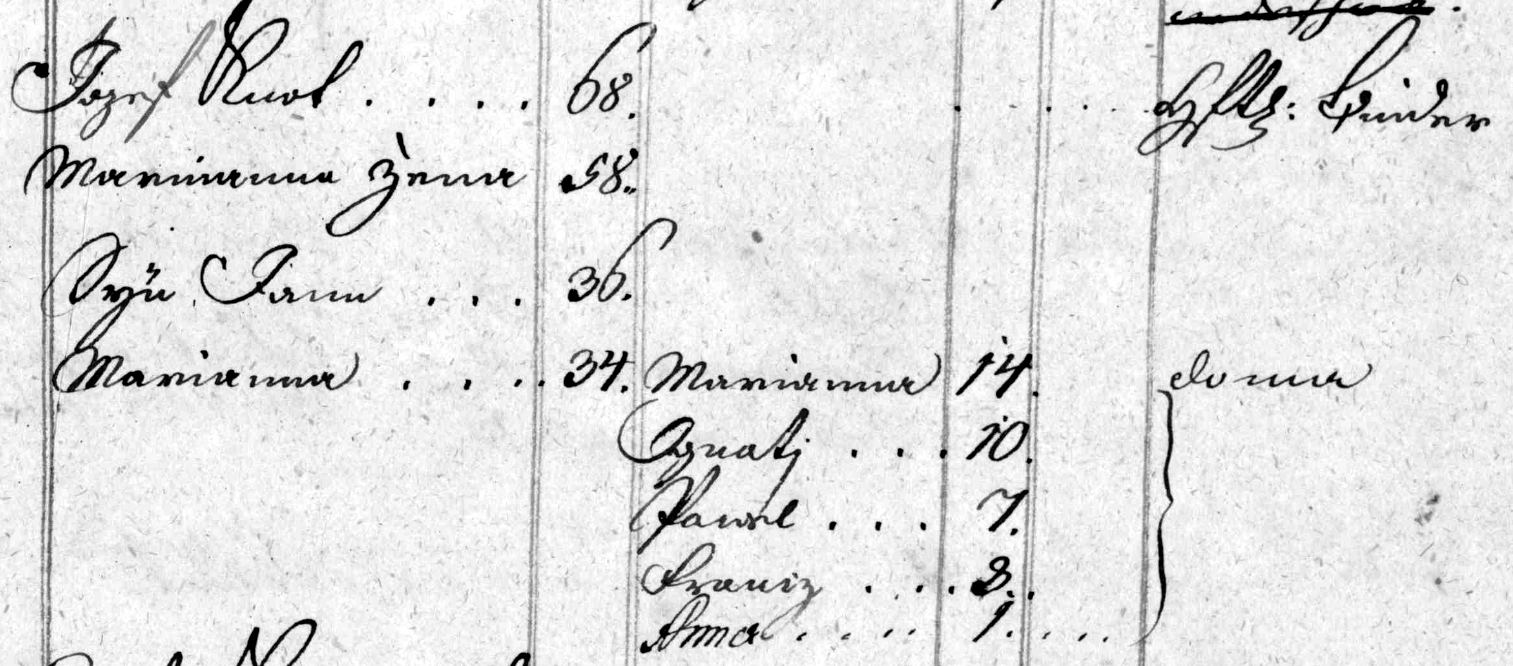 Jozef Knot . . . . 68. . . . . Hftl: Binder
Marianna žena 58.
Syn Jann . . . 36.
Marianna . . . . 34. Marianna 14. doma
Ignatj . . . 10.
Pawel . . . 7.
Franz . . . . 3.
Anna . . . . 1. . . .